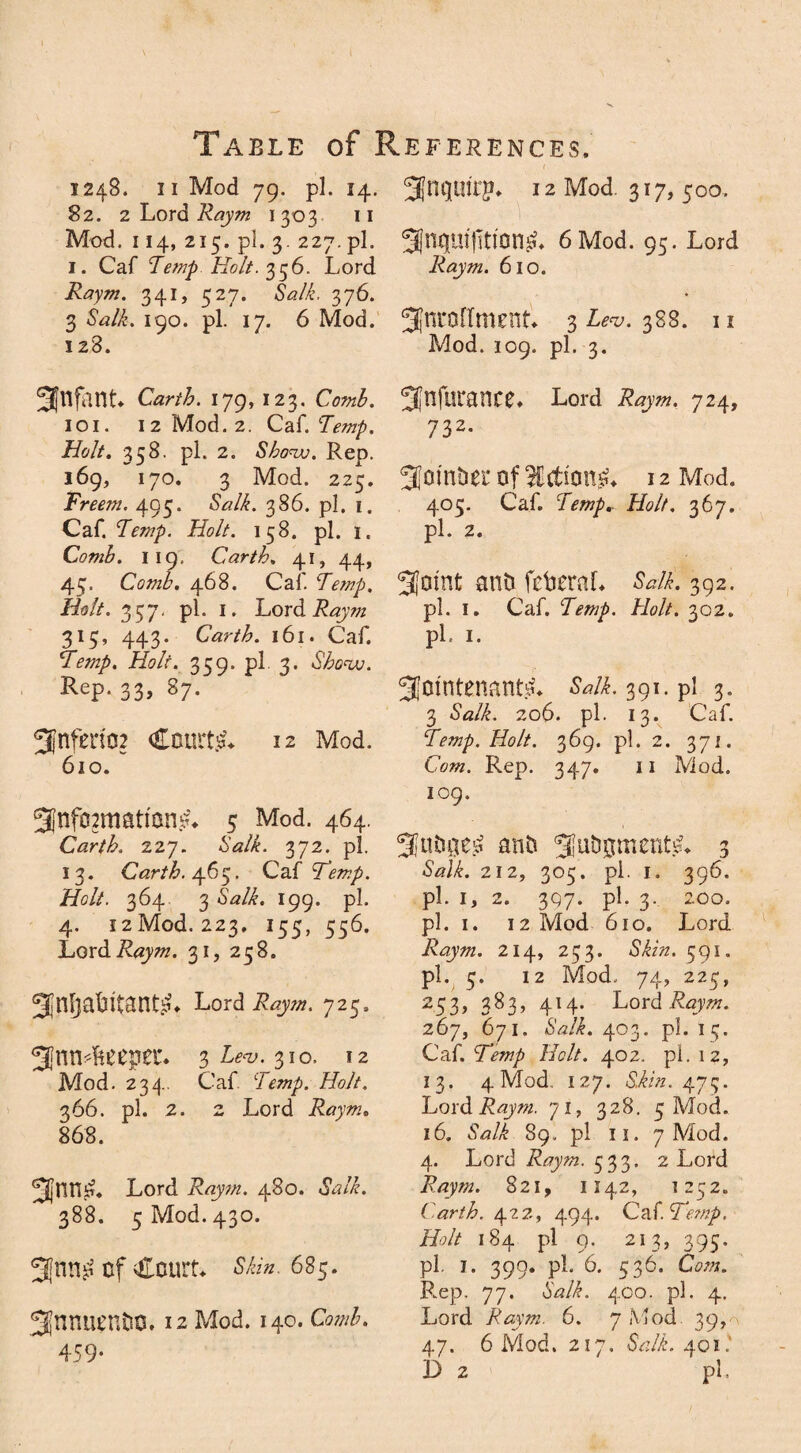 TABLE of REFERENCES.
1248. 11 Mod 79. pl. 14.
82. 2 Lord Raym 1303 11
Mod. 114, 215. pl. 3. 227. pl.
1. Caf Temp Holt. 356. Lord
Raym. 341, 527. Salk. 376.
3 Salk. 190. pl. 17. 6 Mod.
128.
Infant. Carth. 179, 123. Comb.
101. 12 Mod. 2. Caf. Temp.
Holt. 358. pl. 2. Show. Rep.
169, 170. 3 Mod. 225.
Freem. 495. Salk. 386. pl. 1.
Caf. Temp. Holt. 158. pl. 1.
Comb. 119. Carth. 41, 44,
45. Comb. 468. Caf. Temp.
Holt. 357. pl. 1. Lord Raym
315, 443. Carth. 161. Caf.
Temp. Holt. 359. pl. 3. Show.
Rep. 33, 87.
Inferior Courts. 12 Mod.
610.
Informations. 5 Mod. 464.
Carth. 227. Salk. 372. pl.
13. Carth. 465. Caf Temp.
Holt. 364 3 Salk. 199. pl.
4. 12 Mod. 223. 155, 556.
Lord Raym. 31, 258.
Inhabitants. Lord Raym. 725.
Inn-keeper. 3 Lev. 310. 12
Mod. 234. Caf. Temp. Holt.
366. pl. 2. 2 Lord Raym.
868.
Inns. Lord Raym. 480. Salk.
388. 5 Mod. 430.
Inns of Court. Skin. 685.
Innuendo. 12 Mod. 140. Comb.
459.
Inquiry. 12 Mod. 317, 500.
Inquisitions. 6 Mod. 95. Lord
Raym. 610.
Inrollment. 3 Lev. 388. 11
Mod. 109. pl. 3.
Insurance. Lord Raym. 724,
732.
Joinder of Actions. 12 Mod.
405. Caf. Temp. Holt. 367.
pl. 2.
Joint and several. Salk. 392.
pl. 1. Caf. Temp. Holt. 302.
pl. 1.
Jointenants. Salk. 391. pl 3.
3 Salk. 206. pl. 13. Caf.
Temp. Holt. 369. pl. 2. 371.
Com. Rep. 347. 11 Mod.
109.
Judges and Judgments. 3
Salk. 212, 305. pl. 1. 396.
pl. 1, 2. 397. pl. 3. 200.
pl. 1. 12 Mod 610. Lord
Raym. 214, 253. Skin. 591.
pl. 5. 12 Mod. 74, 225,
253, 383, 414. Lord Raym.
267, 671. Salk. 403. pl. 15.
Caf. Temp Holt. 402. pl. 12,
13. 4 Mod. 127. Skin. 475.
Lord Raym. 71, 328. 5 Mod.
16. Salk 89. pl 11. 7 Mod.
4. Lord Raym. 533. 2 Lord
Raym. 821, 1142, 1252.
Carth. 422, 494. Caf. Temp.
Holt 184 pl 9. 213, 395.
pl. 1. 399. pl. 6. 536. Com.
Rep. 77. Salk. 400. pl. 4.
Lord Raym. 6. 7 Mod. 39,
47. 6 Mod. 217. Salk. 401.
D 2 pl.